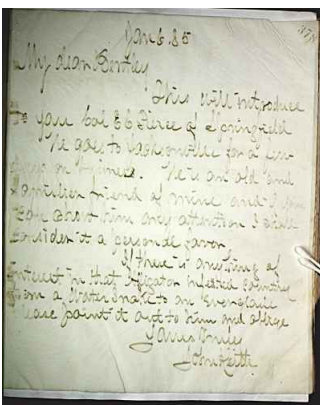 Jan 6. 85
My dear Bentley
This will introduce
to you Col E C Pierce of Springfield
He goes to Jacksonville for a
He is an old and
familier friend of mine and if you
can him any attention I shall
consider it a personal favor.
If there is anything of
interest in that Aligator infested country
from a Water Snake to an Everglade
please point it out to him and oblige
Yours truly
John